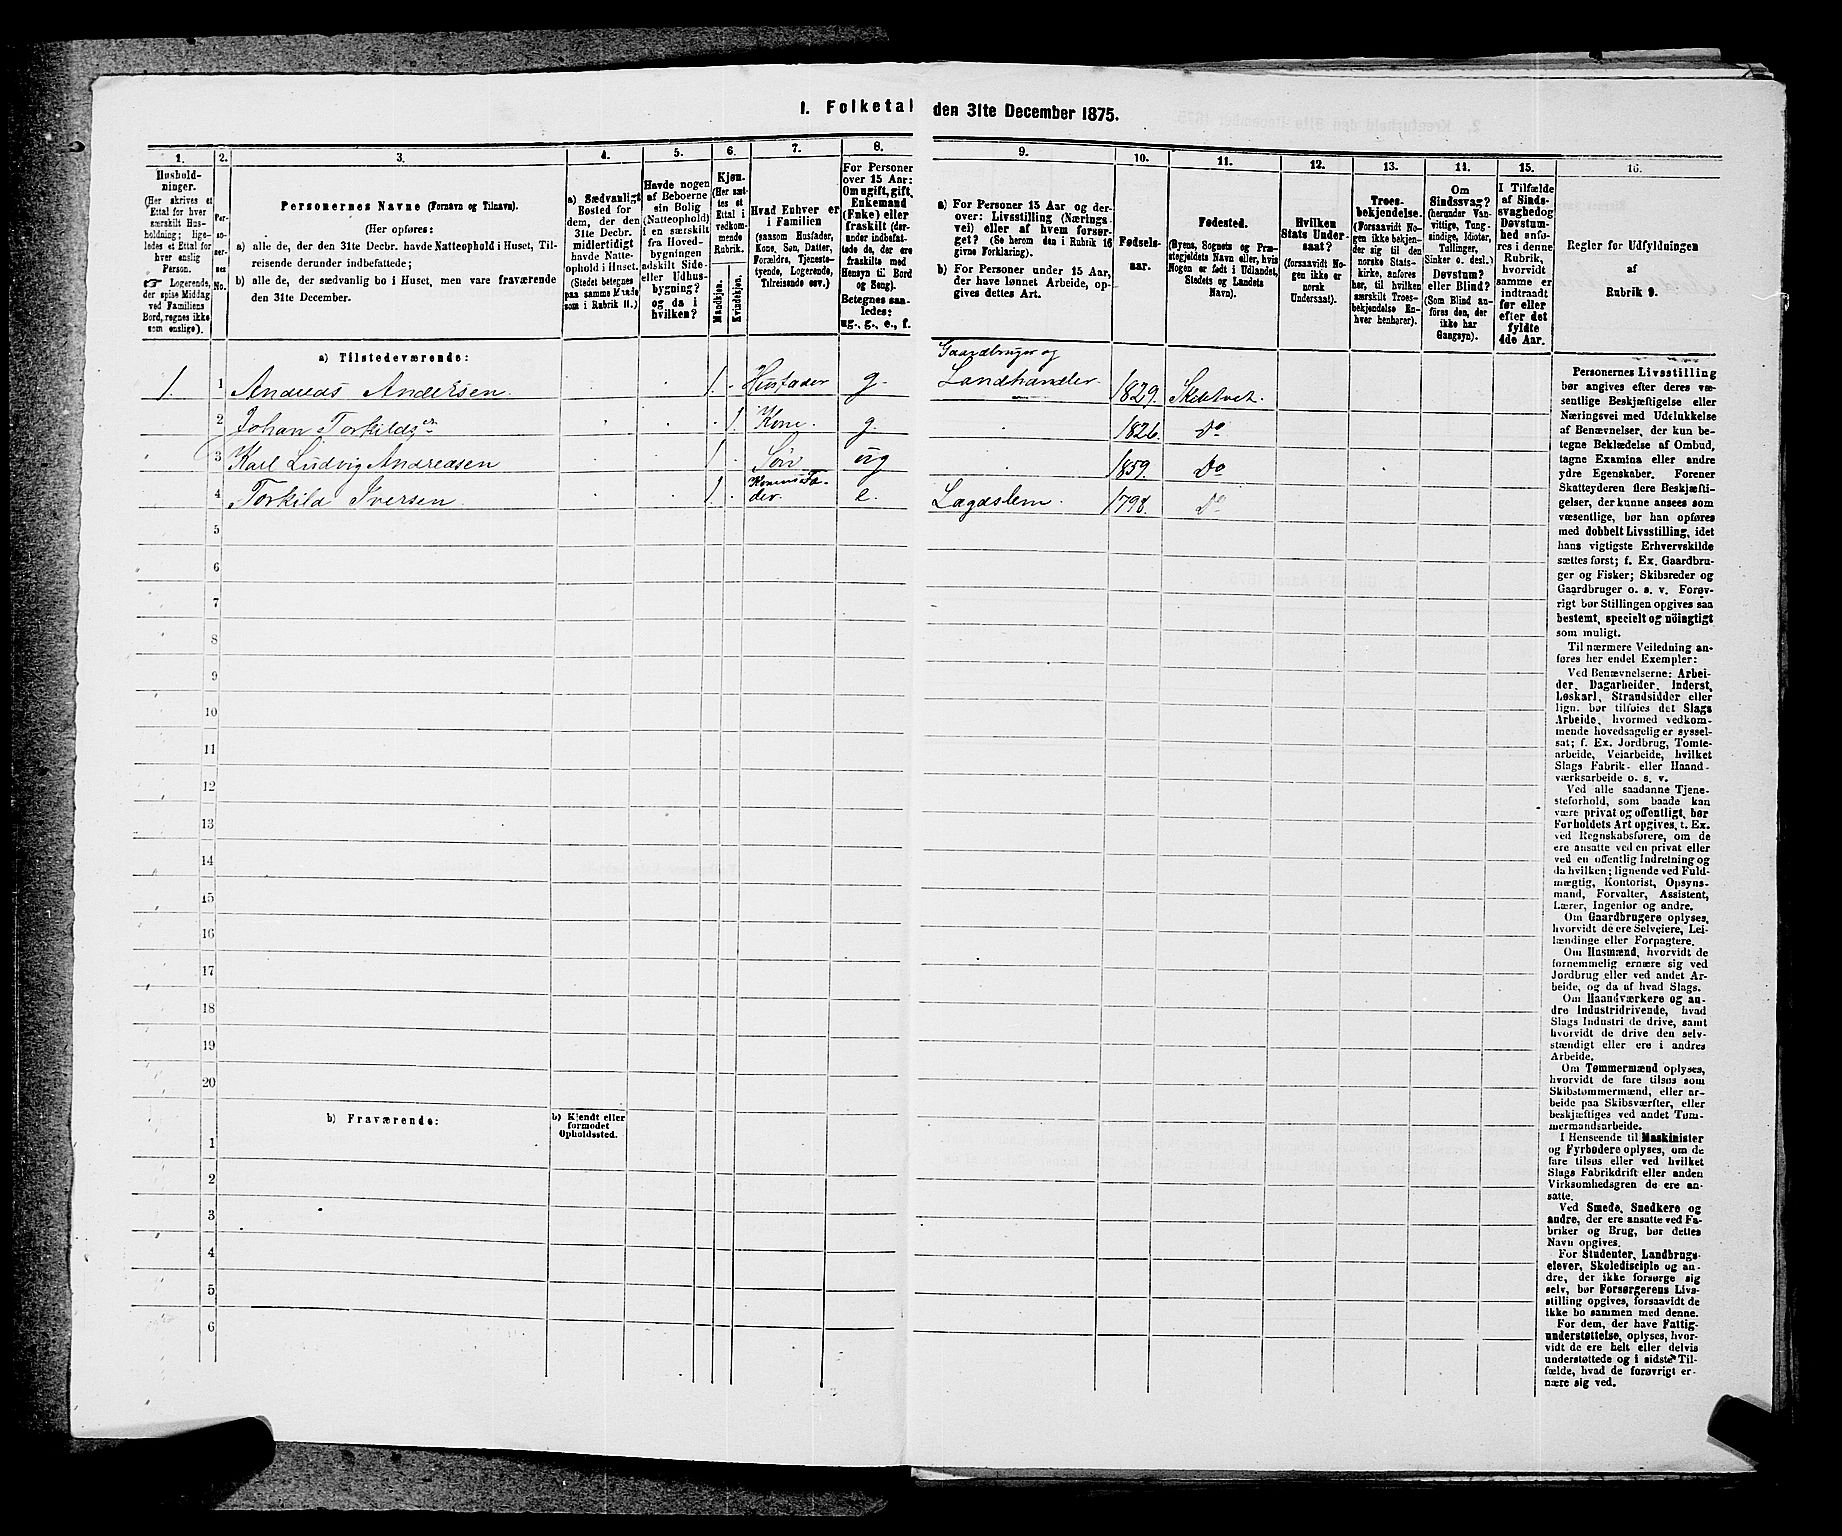 1. Folketal den 31te December 1875.
1.
2.
3.
4.
5.
6.
7.
8.
9.
10.
11.
12.
13.
14.
15.
16.
Hushold-
ninger.
(Her skrives et
Ettal for hver
særskilt Hus-
holdning; lige-
ledes et Ettal for
hver enslig
Person.
☛ Logerende,
der spise Middag
ved Familiens
Bord, regnes ikke
som enslige).
Per-
so-
ner-
nes
No.
Personernes Navne (Fornavn og Tilnavn).
(Her opføres:
a) alle de, der den 31te Decbr. havde Natteophold i Huset, Til-
reisende derunder indbefattede;
b) alle de, der sædvanlig bo i Huset, men vare fraværende
den 31te December.
a) Sædvanligt
Bosted for
dem, der den
31te Decbr.
midlertidigt
havde Natte-
ophold i Huset.
(Stedet betegnes
paa samme Maade
som i Rubrik 11.)
Havde nogen
af Beboerne
sin Bolig
(Natteophold)
i en særskilt
fra Hoved-
bygningen
adskilt Side-
eller Udhus-
bygning?
og da i
hvilken?
Kjøn.
(Her sæt-
tes et
Ettal i
vedkom-
mende
Rubrik.
Mandkjøn.
Kvindekjøn.
Hvad Enhver er
i Familien
(saasom Husfader,
Kone, Søn, Datter,
Forældre, Tjeneste-
tyende, Logerende,
Tilreisende osv.)
For Personer
over 15 Aar:
Om ugift, gift,
Enkemand
(Enke) eller
fraskilt (der-
under indbefat-
tede de, der ere
fraskilte med
Hensyn til Bord
og Seng).
Betegnes saa-
ledes:
ug., g., e., f.
a) For Personer 15 Aar og der-
over: Livsstilling (Nærings-
vei) eller af hvem forsør-
get? (Se herom den i Rubrik 16
givne Forklaring).
b) For Personer under 15 Aar,
der have lønnet Arbeide, op-
gives dettes Art.
Fødsels-
aar.
Fødested.
(Byens, Sognets og Præ-
stegjeldets Navn eller, hvis
Nogen er født i Udlandet,
Stedets og Landets
Navn).
Hvilken
Stats Under-
saat?
(forsaavidt No-
gen ikke er
norsk
Undersaat).
Troes-
bekjendelse.
(Forsaavidt No-
gen ikke bekjen-
der sig til den
norske Stats-
kirke, anføres
her, til hvilken
særskilt Troes-
bekjendelse En-
hver henhører).
Om
Sindssvag?
(herunder Van-
vittige, Tung-
sindige, Idioter,
Tullinger,
Sinker o. desl.)
Døvstum?
eller Blind?
(Som Blind an-
føres den, der
ikke har
Gangsyn).
I Tilfælde
af Sinds-
svaghedog
Døvstum-
hed anfø-
res i denne
Rubrik,
hvorvidt
samme er
indtraadt
før eller
efter det
fyldte
4de Aar.
Regler for Udfyldningen
af
Rubrik 9.
a) Tilstedeværende:
1. 1 Andreas Andersen 1. Husfader g. Gaardbruger og Landhandler. 1829. Skedtvet.
2 Johan Torkildsen 1. Kone. g. 1826. Do
3 Karl Ludvig Andreasen 1. Søn ug 1859. Do
4 Torkild Iversen 1. Konens Fader. e. Lægdslem. 1798. Do
5
6
7
8
9
10
11
12
13
14
15
16
17
18
19
20
b) Fraværende:
b) Kjendt eller
formodet
Opholdssted.
1
2
3
4
5
6
Personernes Livsstilling
bør angives efter deres væ-
sentlige Beskjæftigelse eller
Næringsvei med Udelukkelse
af Benævnelser, der kun be-
tegne Beklædelse af Ombud,
tagne Examina eller andre
ydre Egenskaber. Forener
Skatteyderen flere Beskjæfti-
gelser, der kunne ansees som
væsentlige, bør han opføres
med dobbelt Livsstilling, idet
hans vigtigste Erhvervskilde
sættes først; f. Ex. Gaardbru-
ger og Fisker; Skibsreder og
Gaardbruger o. s. v. Forøv-
rigt bør Stillingen opgives saa
bestemt, specielt og nöiagtigt
som muligt.
Til nærmere Veiledning an-
føres her endel Exempler:
Ved Benævnelserne: Arbei-
der, Dagarbeider, Inderst,
Løskarl, Strandsidder eller
lign. bør tilføies det Slags
Arbeide, hvormed vedkom-
mende hovedsagelig er syssel-
sat; f. Ex. Jordbrug, Tomte-
arbeide, Veiarbeide, hvilket
Slags Fabrik- eller Haand-
værksarbeide o. s. v.
Ved alle saadanne Tjene-
steforhold, som baade kan
være privat og offentligt, bør
Forholdets Art opgives, t. Ex.
ved Regnskabsførere, om de
ere ansatte ved en privat eller
ved en offentlig Indretning og
da hvilken; lignende ved Fuld-
mægtig, Kontorist, Opsyns-
mand, Forvalter, Assistent,
Lærer, Ingeniør og andre.
Om Gaardbrugere oplyses,
hvorvidt de ere Selveiere, Lei-
lændinge eller Forpagtere.
Om Husmænd, hvorvidt de
fornemmelig ernære sig ved
Jordbrug eller ved andet Ar-
beide, og da af hvad Slags.
Om Haandværkere og an-
dre Industridrivende, hvad
Slags Industri de drive, samt
hvorvidt de drive den selv-
stændigt eller ere i andres
Arbeide.
Om Tømmermænd oplyses,
hvorvidt de fare tilsøs som
Skibstømmermænd, eller ar-
beide paa Skibsværfter, eller
beskjæftiges ved andet Tøm-
mermandsarbeide.
I Henseende til Maskinister
og Fyrbødere oplyses, om de
fare tilsøs eller ved hvilket
Slags Fabrikdrift eller anden
Virksomhedsgren de ere an-
satte.
Ved Smede, Snedkere og
andre, der ere ansatte ved Fa-
briker og Brug, bør dettes
Navn opgives.
For Studenter, Landbrugs-
elever, Skoledisciple og an-
dre, der ikke forsørge sig
selv, bør Forsørgerens Livs-
stilling opgives, forsaavidt de
ikke bo sammen med denne.
For dem, der have Fattig-
understøttelse, oplyses, hvor-
vidt de ere helt eller delvis
understøttede og i sidste Til-
fælde, hvad de forøvrigt er-
nære sig ved.